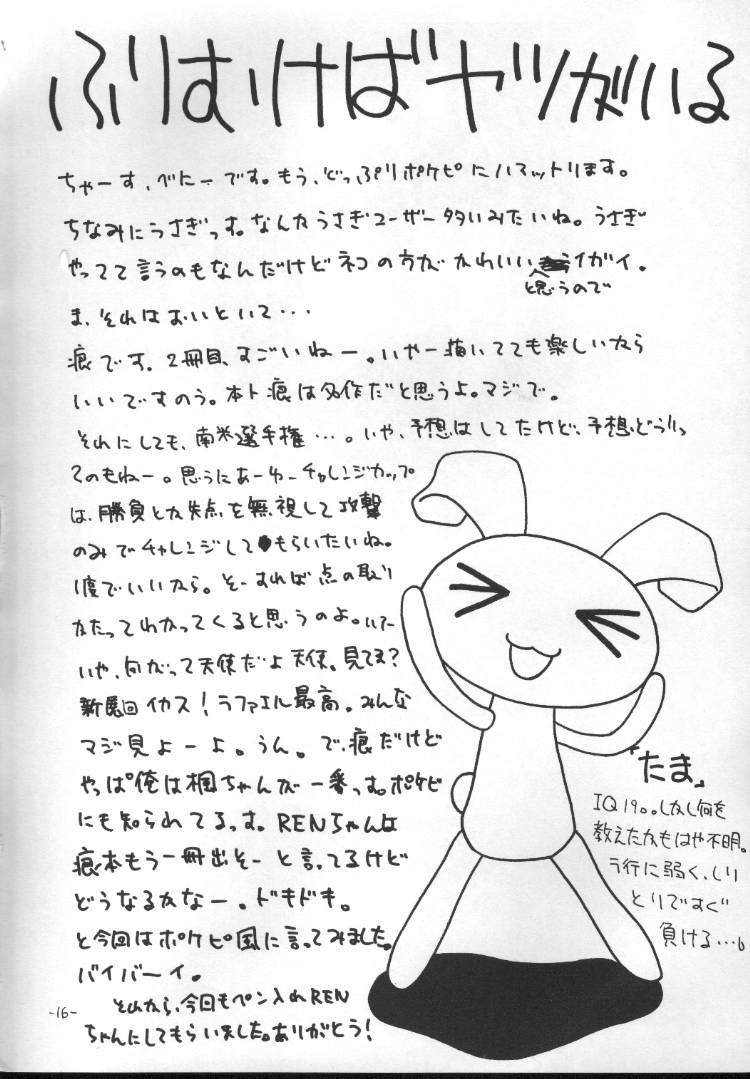 ふりむけばヤツがいる
ちゃーす、べにーです。もう、どっぷりポケピにハマットります。
ちなみにうさぎっす。なんかうさぎユーザー多いみたいね。うさぎ
やってて言うのもなんだけどネコの方がかわいいと思うのでイガイ。
ま、それはおいといて・・・
痕です。2冊目、すごいねー。いやー描いてても楽しいから
いいですのう。本ト痕は名作だと思うよ。マジで。
それにしても、南米選手権・・・。いや、予想はしてたけど、予想どうりっ
てのもねー。思うにあーゆーチャレンジカップ
は、勝負とか失点を無視して攻撃
のみでチャレンジしてもらいたいね。
1度でいいから。そーすれば点の取り
かたってわかってくると思うのよ。
いや、向がって天使だよ天使。見てま?
新魔回イカス!ラファエル最高。みんな
マジ見よーよ。うん。で、痕だけど
やっぱ俺は楓ちゃんが一番っす。ポケピ
にも知られてるっす。RENちゃんは
痕本もう一冊出そーと言ってるけど
どうなるかなー。ドキドキ。
と今回はポケピ風に言ってみました。
バイバーイ。
それから、今回もペン入れREN
ちゃんにしてもらいました。ありがとう!
「たま」
IQ190。しかし何を
教えたかもはや不明。
ラ行に弱く、しり
とりですぐ
負ける…。
-16-